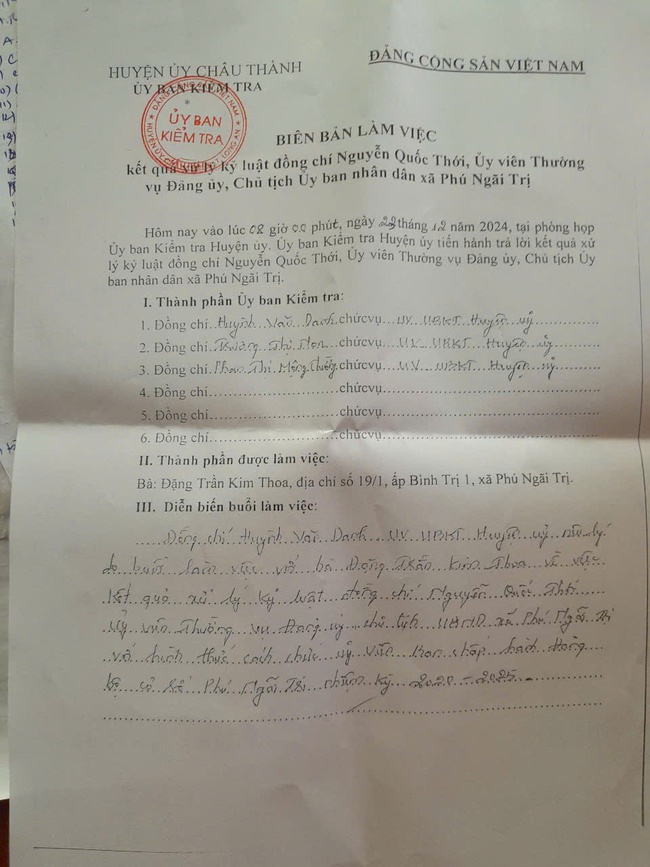 HUYỆN ỦY CHÂU THÀNH
ỦY BAN KIỂM TRA
*
ĐẢNG CỘNG SẢN VIỆT NAM
ỦY BAN
KIỂM TRA
BIÊN BẢN LÀM VIỆC
kết quả xử lý kỷ luật đồng chí Nguyễn Quốc Thới, Ủy viên Thường
vụ Đảng ủy, Chủ tịch Ủy ban nhân dân xã Phú Ngãi Trị
Hôm nay vào lúc 08 giờ 00 phút, ngày 23 tháng 12 năm 2024, tại phòng họp
Ủy ban Kiểm tra Huyện ủy. Ủy ban Kiểm tra Huyện ủy tiến hành trả lời kết quả xử
lý kỷ luật đồng chí Nguyễn Quốc Thới, Ủy viên Thường vụ Đảng ủy, Chủ tịch Ủy
ban nhân dân xã Phú Ngãi Trị.
I. Thành phần Ủy ban Kiểm tra:
1. Đồng chí Huỳnh Văn Danh chức vụ UV UBKT Huyện uỷ
2. Đồng chí Thị chức vụ UV UBKT Huyện uỷ
3. Đồng chí Phan Thị Mộng Thường chức vụ UV UBKT Huyện uỷ
4. Đồng chí chức vụ
5. Đồng chí chức vụ
6. Đồng chí chức vụ
II. Thành phần được làm việc:
Bà: Đặng Trần Kim Thoa, địa chỉ số 19/1, ấp Bình Trị 1, xã Phú Ngãi Trị.
III. Diễn biến buổi làm việc:
Đồng chí Huỳnh Văn Danh UV UBKT Huyện uỷ nêu lý
do buổi làm việc với bà Đặng Trần Kim Thoa về việc
kết quả xử lý kỷ luật đồng chí Nguyễn Quốc Thới
Uỷ viên Thường vụ Đảng uỷ chủ tịch UBND xã Phú Ngãi Trị
với hình thức cách chức uỷ viên ban chấp hành Đảng
bộ xã Phú Ngãi Trị nhiệm kỳ 2020 - 2025